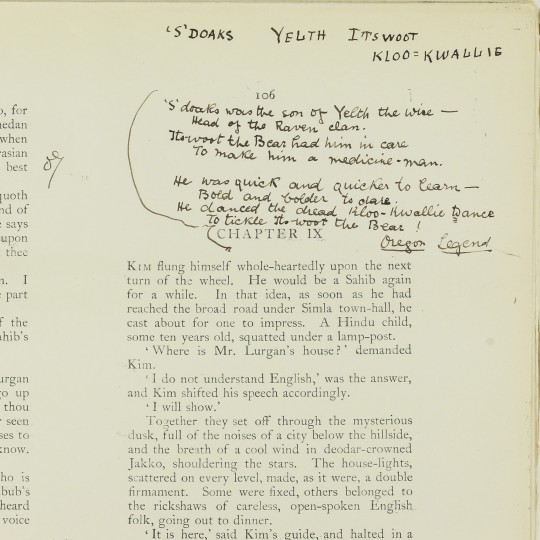 'S'DOAKS YELTH ITSWOOT
KLOO=KWALLIE
106
'S'doaks was the son of Yelth the wise —
Head of the Raven clan.
Itswoot the Bear had him in care
To make him a medicine-man.
He was quick and quicker to learn —
Bold and bolder to dare.
He danced the dread Kloo-Kwallie Dance
To tickle Itswoot the Bear!
Oregon Legend
CHAPTER IX
KIM flung himself whole-heartedly upon the next
turn of the wheel. He would be a Sahib again
for a while. In that idea, as soon as he had
reached the broad road under Simla town-hall, he
cast about for one to impress. A Hindu child,
some ten years old, squatted under a lamp-post.
'Where is Mr. Lurgan's house?' demanded
Kim.
'I do not understand English,' was the answer,
and Kim shifted his speech accordingly.
'I will show.'
Together they set off through the mysterious
dusk, full of the noises of a city below the hillside,
and the breath of a cool wind in deodar-crowned
Jakko, shouldering the stars. The house-lights,
scattered on every level, made, as it were, a double
firmament. Some were fixed, others belonged to
the rickshaws of careless, open-spoken English
folk, going out to dinner.
'It is here,' said Kim's guide, and halted in a
, for
nedan
when
rasian
best
quoth
nd of
says
upon
thee
n. I
part
f the
ahib's
urgan
go up
thou
seen
ses to
know.
ho is
bub's
heard
voice